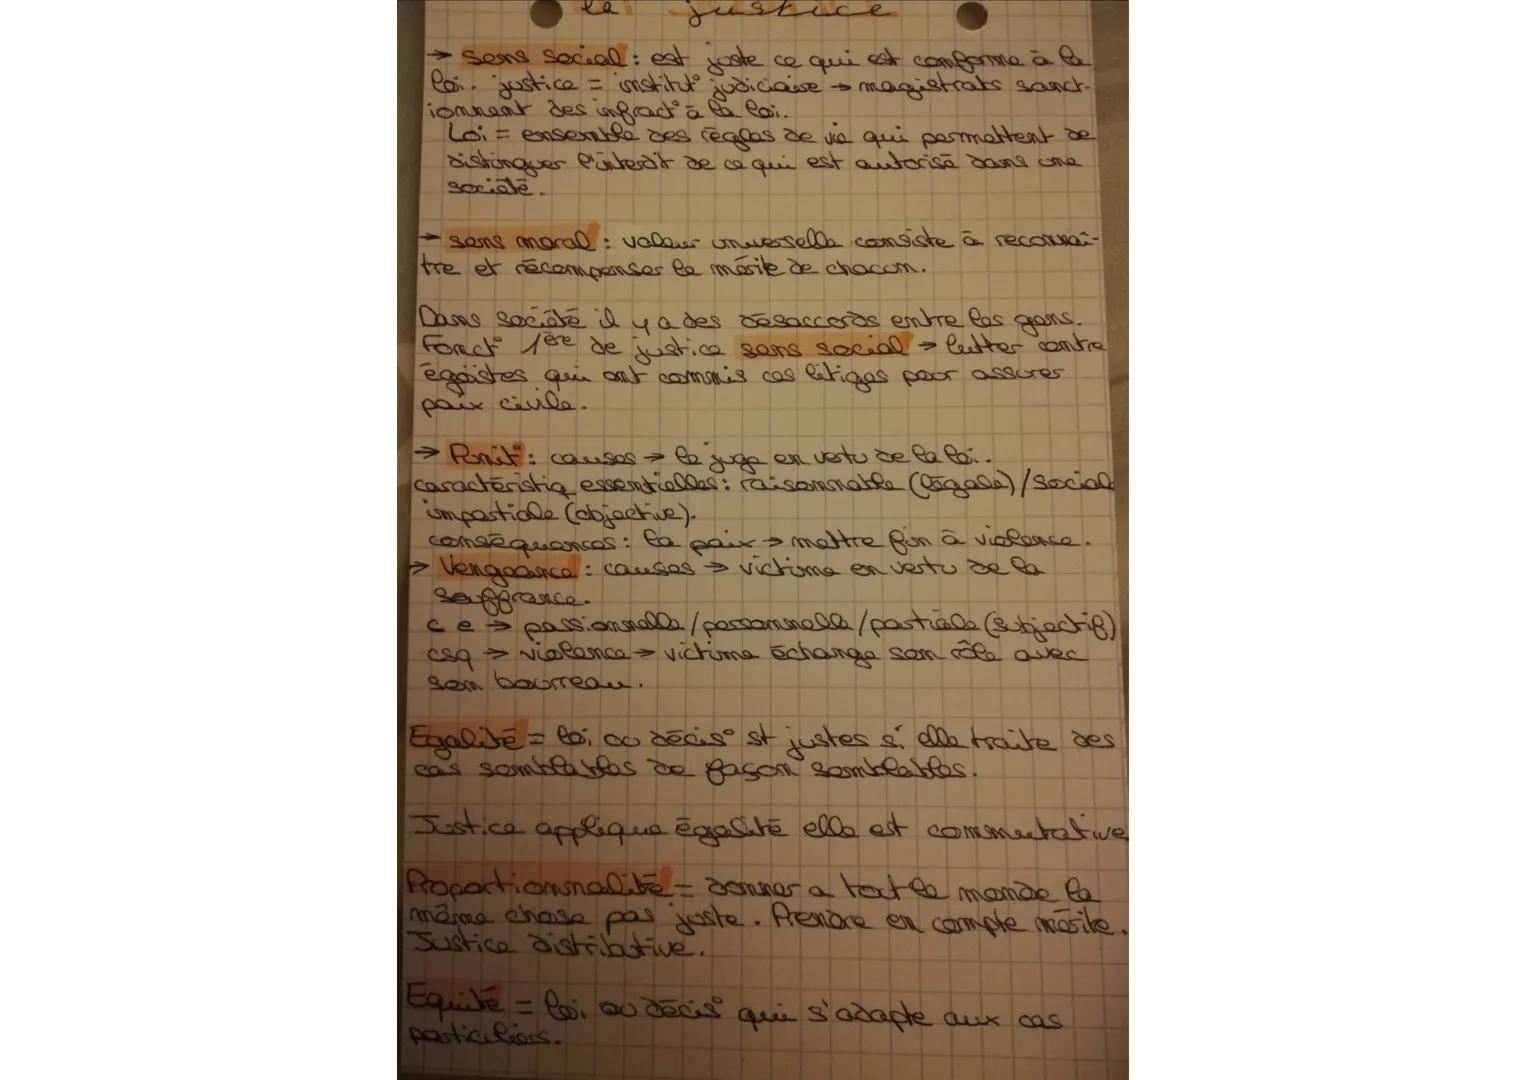 la justice
→ sens social : est juste ce qui est conforme à la
loi. justice = institut° judiciaire → magistrats sanct-
ionnent des infract° à la loi.
Loi = ensemble des règles de vie qui permettent de
distinguer l'interdit de ce qui est autorisé dans une
société.
→ sens moral : valeur universelle consiste à reconnaî-
tre et récompenser le mérite de chacun.
Dans société il y a des désaccords entre les gens.
Fonct° 1ère de justice sens social → lutter contre
égoïstes qui ont commis ces litiges pour assurer
paix civile.
→ Punit° : causes → le juge en vertu de la loi.
caractéristiq essentielles : raisonnable (légale) / social
impartiale (objective).
conséquences : la paix → mettre fin à violence.
→ Vengeance : causes → victime en vertu de la
souffrance.
c e → passionnelle / personnelle / partiale (subjectif)
csq → violence → victime échange son rôle avec
son bourreau.
Egalité = loi ou décis° st justes si elle traite des
cas semblables de façon semblables.
Justice applique égalité elle est commutative
Proportionnalité = donner a tout le monde la
même chose pas juste. Prendre en compte mérite.
Justice distributive.
Equité = loi ou décis° qui s'adapte aux cas
particuliers.